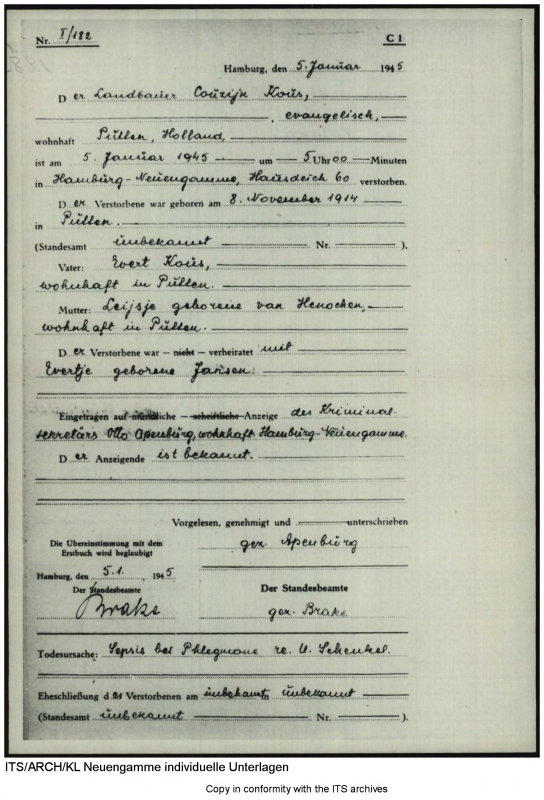 Nr. I/182 C 1
Hamburg, den 5. Januar 1945
D er Landbauer Couzijn Koüs,
, evangelisch,
wohnhaft Pütten, Holland,
ist am 5. Januar 1945 um 5 Uhr 00 Minuten
in Hamburg-Neuengamme, Hausdeich 60 verstorben.
D er Verstorbene war geboren am 8. November 1914
in Pütten.
(Standesamt ünbekannt Nr. ).
Vater: Evert Koüs,
wohnhaft in Pütten.
Mutter: Leijsje geborene van Henochen,
wohnhaft in Pütten.
D er Verstorbene war – nicht – verheiratet mit
Evertje geborene Jansen.
Eingetragen auf mündliche – schriftliche Anzeige des Kriminal-
sekretärs Otto Apenbürg, wohnhaft Hamburg-Neuengamme.
D er Anzeigende ist bekannt.
Vorgelesen, genehmigt und unterschrieben
Die Übereinstimmung mit dem
Erstbuch wird beglaubigt
gez. Apenbürg
Hamburg, den 5.1. 1945
Der Standesbeamte
Brake
Der Standesbeamte
gez. Brake
Todesursache: Sepsis bei Phlegmone re. U. Schenkel.
Eheschließung d es Verstorbenen am ünbekannt in ünbekannt
(Standesamt ünbekannt Nr. ).
ITS/ARCH/KL Neuengamme individuelle Unterlagen
Copy in conformity with the ITS archives